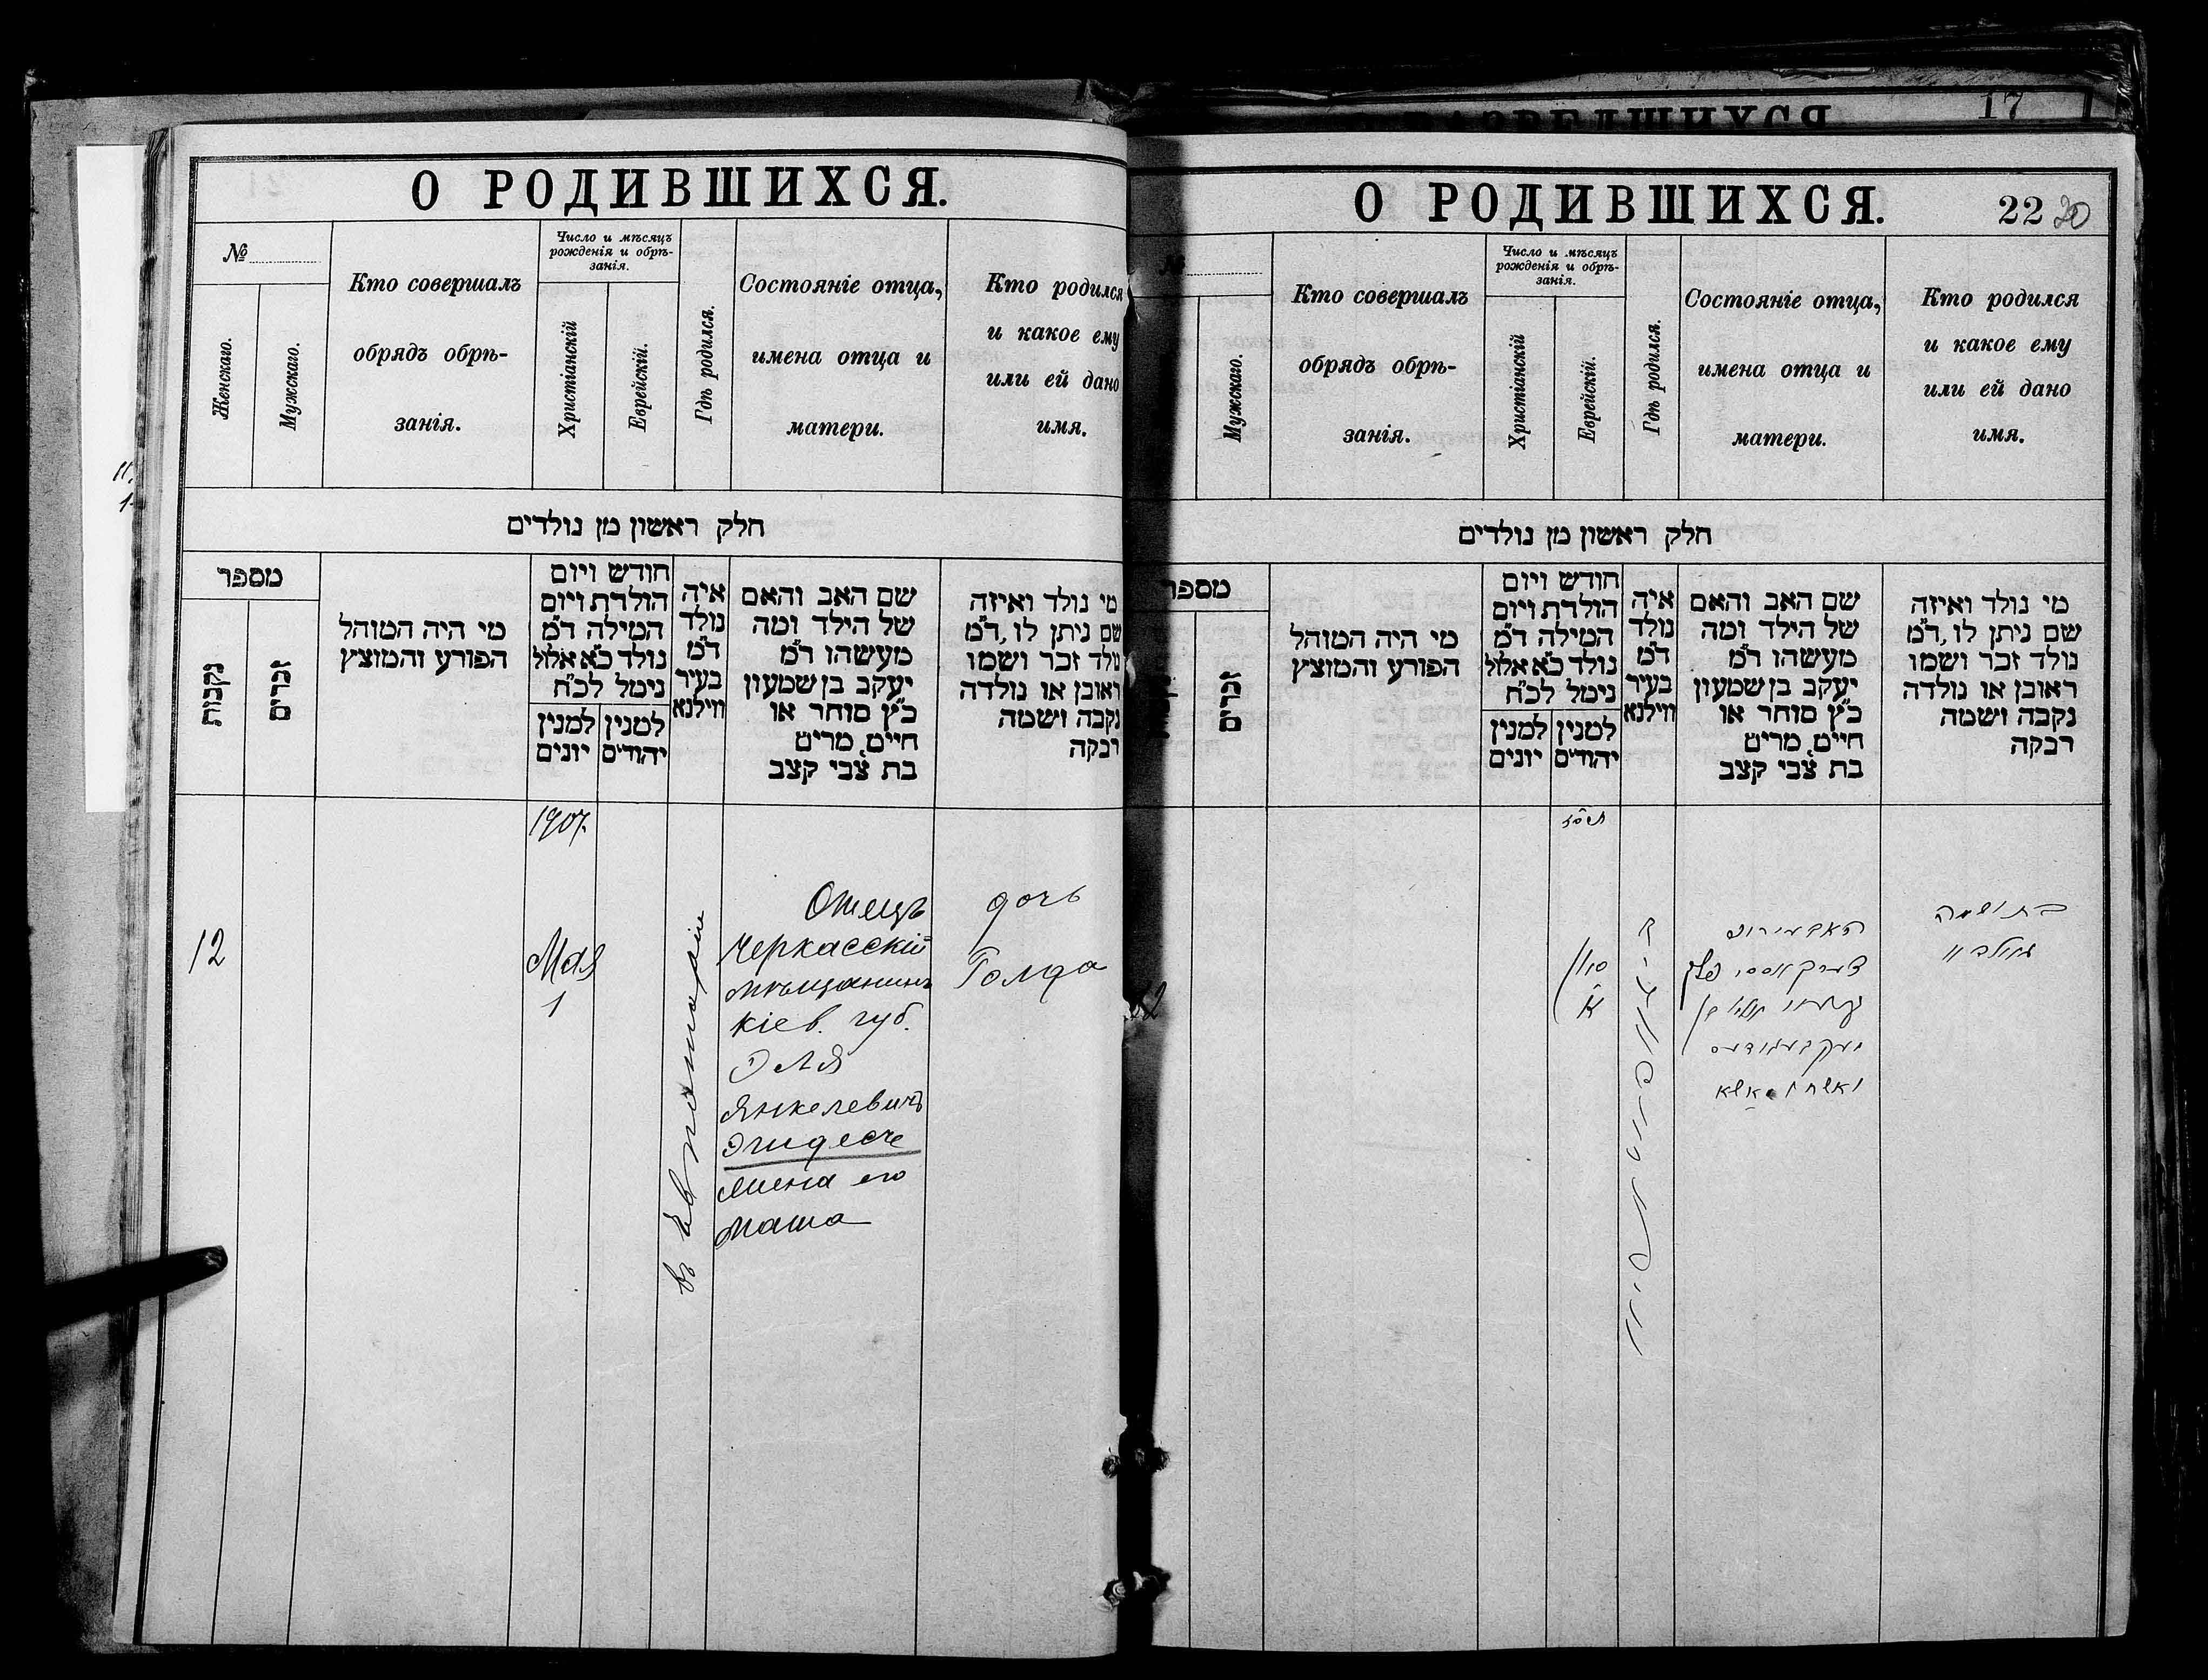 17
О РОДИВШИХСЯ.
№
Женскаго.
Мужскаго.
Кто совершалъ
обрядъ обрѣ-
занія.
Число и мѣсяцъ
рожденія и обрѣ-
занія.
Христіанскій
Еврейскій.
Гдѣ родился.
Состояніе отца,
имена отца и
матери.
Кто родился
и какое ему
или ей дано
имя.
חלק ראשון מן נולדים
מספר
נקבות
זכרים
מי היה המוהל
הפורע והמוצץ
חודש ויום
הולדת ויום
המילה ד"מ
נולד כ"א אלול
נימל לכ"ח
למנין יונים
למנין יהודים
איה
נולד
ד"מ
בעיר
ווילנא
שם האב והאם
של הילד ומה
מעשהו ד"מ
יעקב בן שמעון
כ"ץ סוחר או
חיים, מרים
בת צבי קצב
מי נולד ואיזה
שם ניתן לו, ד"מ
נולד זכר ושמו
ראובן או נולדה
נקבה ושמה
רבקה
1907.
12
Мая
1
въ Евпаторіи
Отецъ
Черкасскій
мѣщанинъ
Кіев. губ.
Эля
Янкелевичъ
Эгидесъ
Жена его
Маша
дочь
Голда
О РОДИВШИХСЯ.
22 20
Мужскаго.
Кто совершалъ
обрядъ обрѣ-
занія.
Число и мѣсяцъ
рожденія и обрѣ-
занія.
Христіанскій
Еврейскій.
Гдѣ родился.
Состояніе отца,
имена отца и
матери.
Кто родился
и какое ему
или ей дано
имя.
חלק ראשון מן נולדים
מספר
זכרים
מי היה המוהל
הפורע והמוצץ
חודש ויום
הולדת ויום
המילה ד"מ
נולד כ"א אלול
נימל לכ"ח
למנין יונים
למנין יהודים
איה
נולד
ד"מ
בעיר
ווילנא
שם האב והאם
של הילד ומה
מעשהו ד"מ
יעקב בן שמעון
כ"ץ סוחר או
חיים, מרים
בת צבי קצב
מי נולד ואיזה
שם ניתן לו, ד"מ
נולד זכר ושמו
ראובן או נולדה
נקבה ושמה
רבקה
בת ושמה